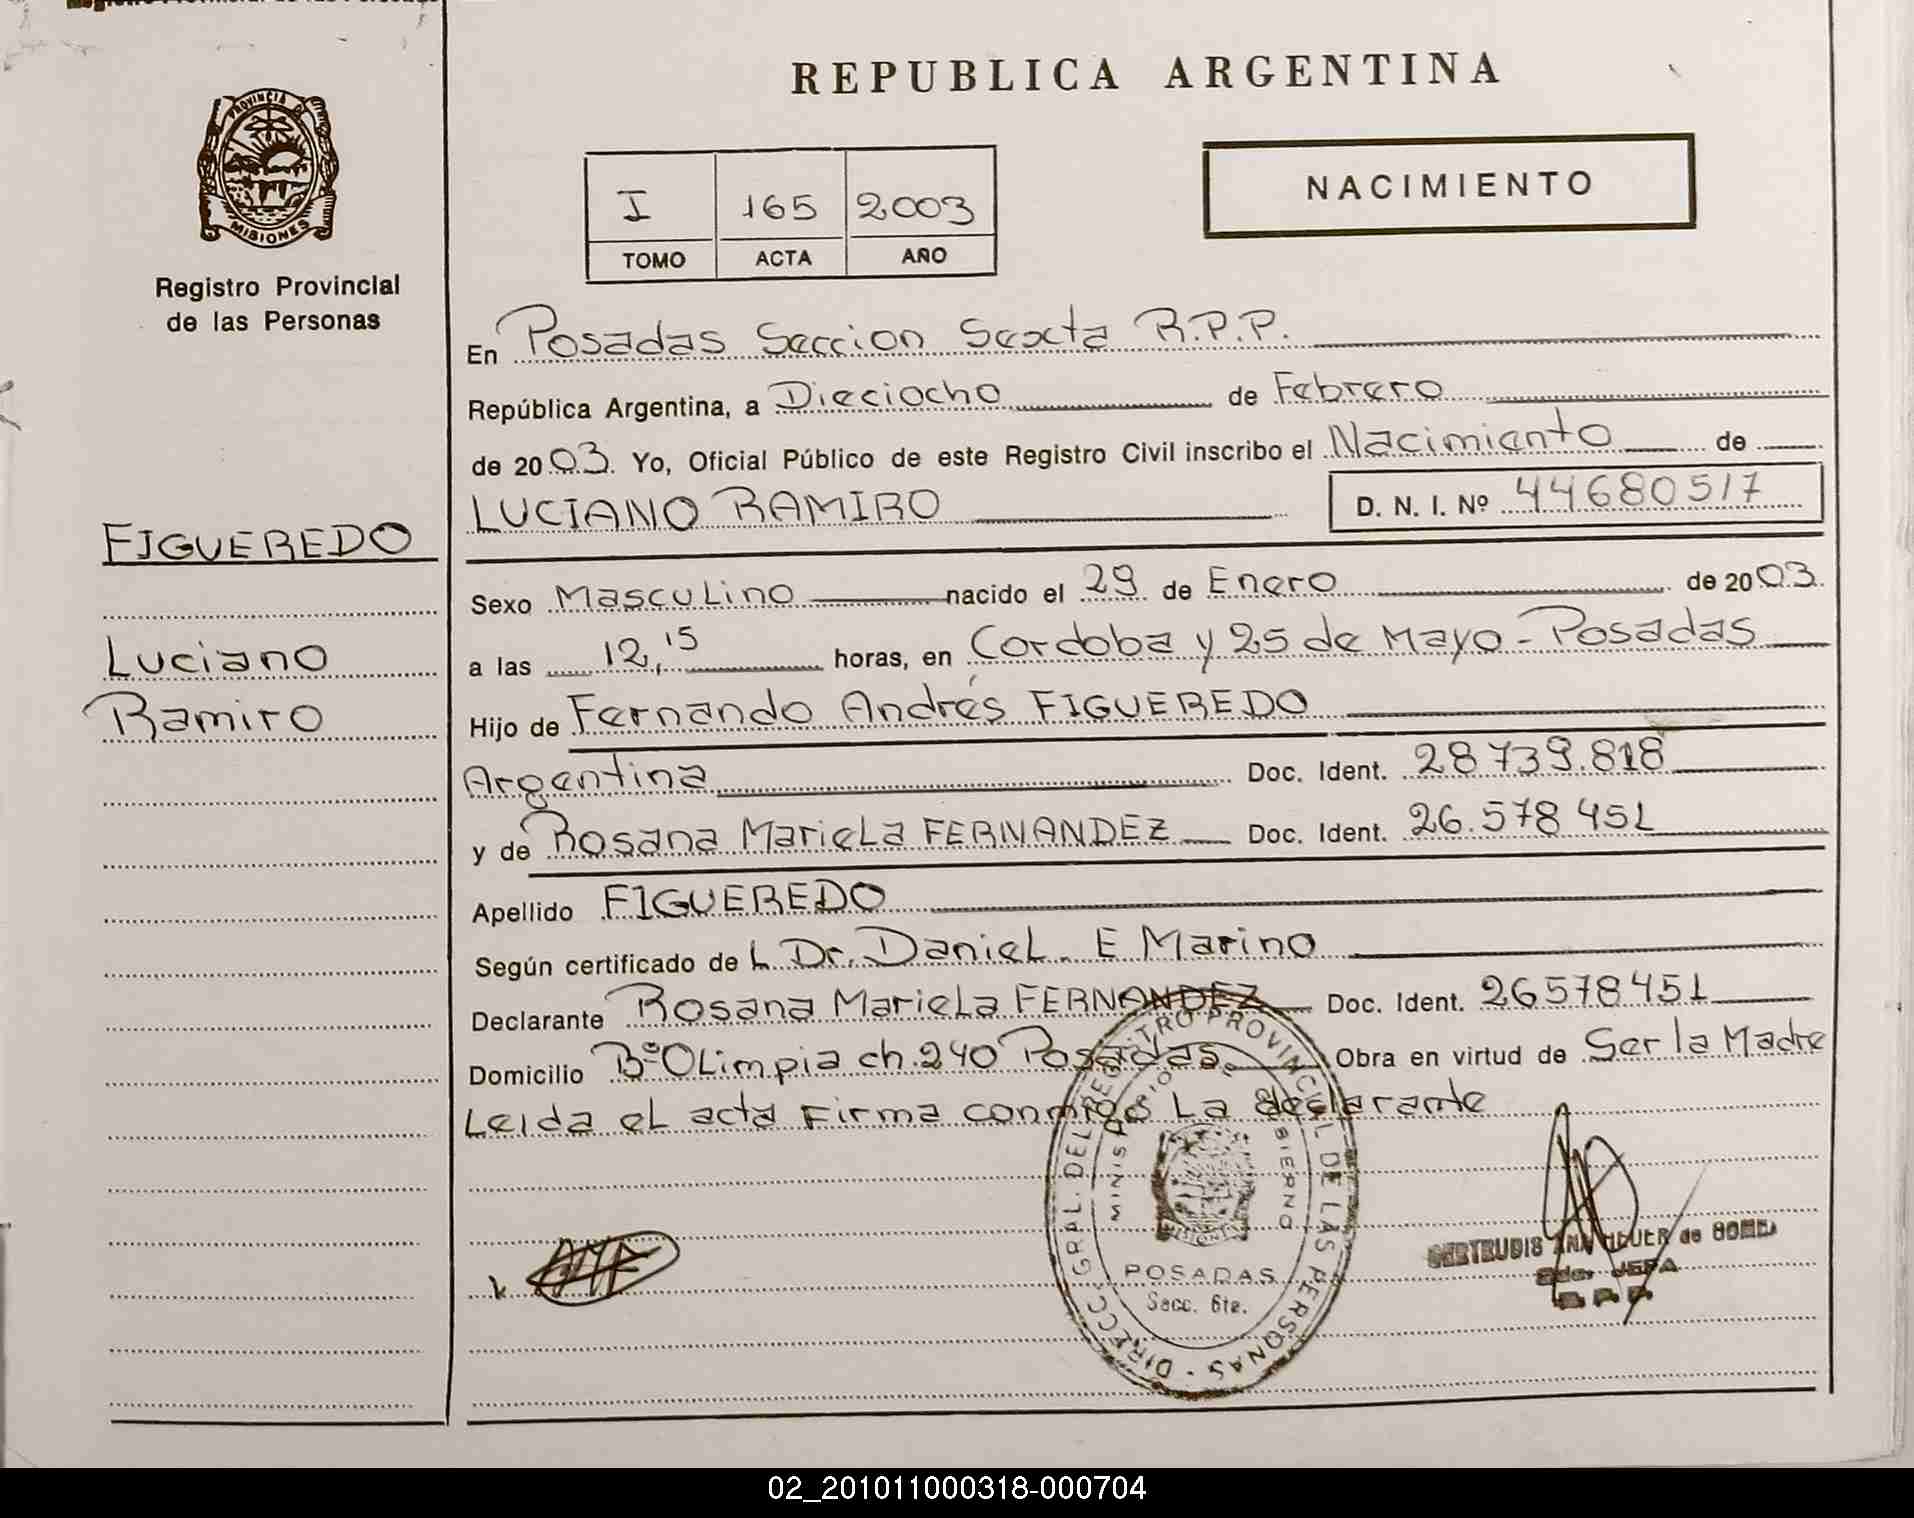 REPUBLICA ARGENTINA
PROVINCIA DE
MISIONES
Registro Provincial
de las Personas
I 165 2003
TOMO ACTA AÑO
NACIMIENTO
FIGUEREDO
Luciano
Ramiro
En Posadas Seccion Sexta R.P.P.
República Argentina, a Dieciocho de Febrero
de 2003. Yo, Oficial Público de este Registro Civil inscribo el Nacimiento de
LUCIANO RAMIRO D. N. I. Nº 44680517
Sexo Masculino nacido el 29 de Enero de 2003.
a las 12,15 horas, en Cordoba y 25 de Mayo - Posadas
Hijo de Fernando Andrés FIGUEREDO
Argentina Doc. Ident. 28739.818
y de Rosana Mariela FERNANDEZ Doc. Ident. 26.578451
Apellido FIGUEREDO
Según certificado de L Dr. Daniel. E Marino
Declarante Rosana Mariela FERNANDEZ Doc. Ident. 26578451
Domicilio Bº Olimpia ch. 240 Posadas. Obra en virtud de Ser la Madre
Leida el acta Firma conmigo La declarante
DIRECC. GRAL. DEL REGISTRO PROVINCIAL DE LAS PERSONAS
POSADAS
Secc. 6ta.
GERTRUDIS ANA de
2da. JEFA
R. P. P.
02_201011000318-000704